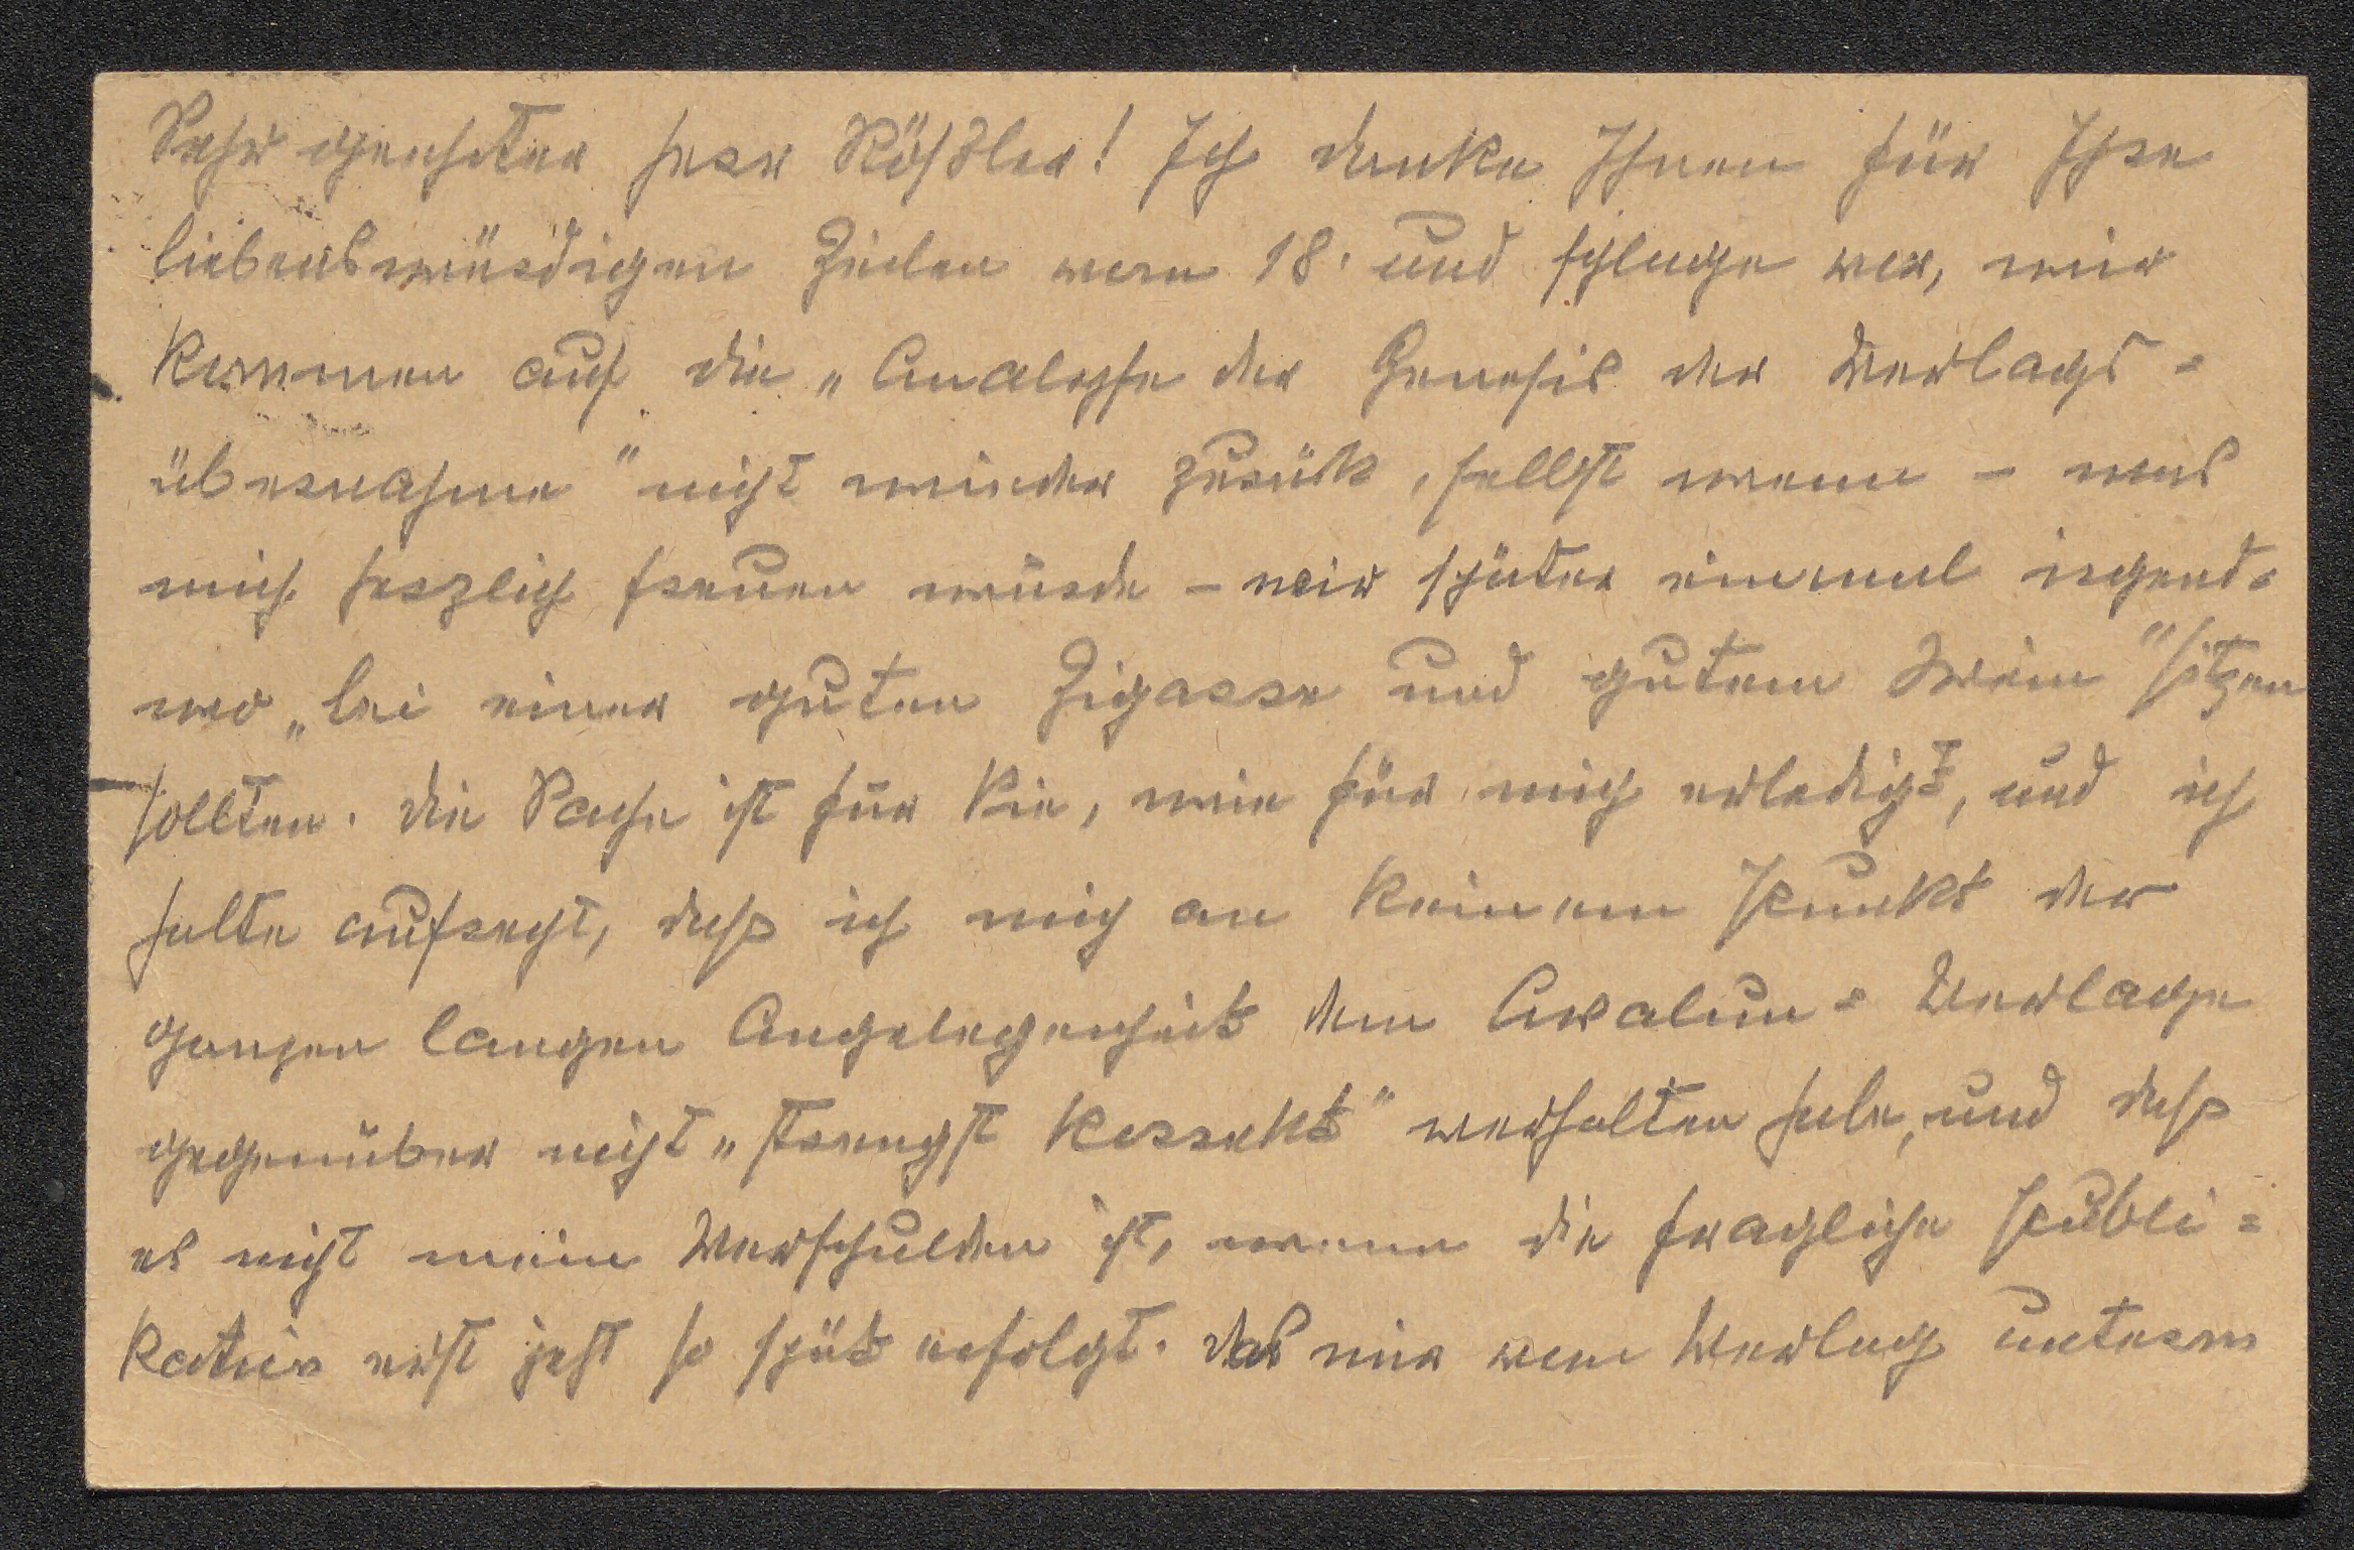 Sehr geehrter Herr Rößler! Ich danke Ihnen für Ihre
liebenswürdigen Zeilen vom 18. und schlage vor, wir
kommen auf die „Analyse der Genesis der Verlags=
übernahme" nicht wieder zurück, selbst wenn – was
mich herzlich freuen würde – wir später einmal irgend=
wo „bei einer guten Zigarre und gutem Wein" sitzen
sollten. Die Sache ist für Sie, wie für mich erledigt, und ich
halte aufrecht, daß ich mich an keinem Punkt der
ganzen langen Angelegenheit dem Avalun=Verlage
gegenüber nicht „strengst korrekt" verhalten habe, und daß
es nicht mein Verschulden ist, wenn die fragliche Publi=
kation erst jetzt so spät erfolgt. Das mir vom Verlag unterm